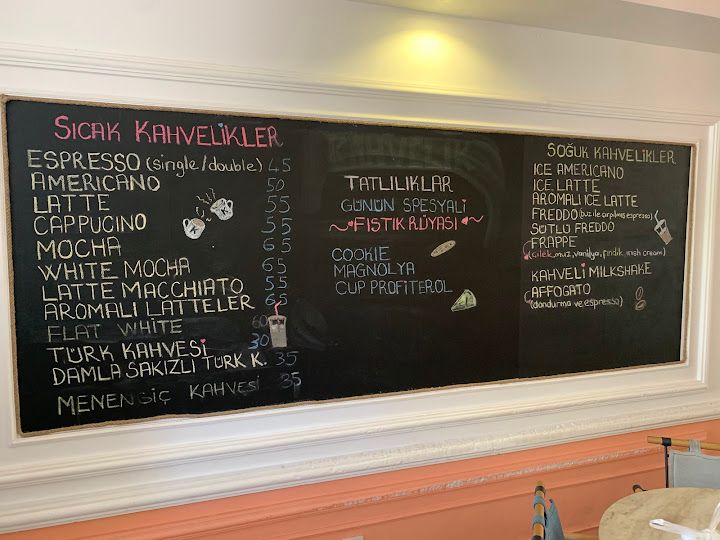 SICAK KAHVELİKLER
ESPRESSO (single/double) 45
AMERICANO 50
LATTE 55
CAPPUCINO 55
MOCHA 65
WHITE MOCHA 65
LATTE MACCHIATO 55
AROMALI LATTELER 65
FLAT WHITE 60
TÜRK KAHVESİ 30
DAMLA SAKIZLI TÜRK K. 35
MENENGİÇ KAHVESİ 35
TATLILIKLAR
GÜNÜN SPESYALİ
~FISTIK RÜYASI~
COOKIE
MAGNOLYA
CUP PROFITEROL
SOĞUK KAHVELİKLER
ICE AMERICANO
ICE LATTE
AROMALI ICE LATTE
FREDDO (buz ile çırpılmış espresso)
SÜTLÜ FREDDO
FRAPPE
(çilek, muz, vanilya, fındık, irish cream)
KAHVELİ MILKSHAKE
AFFOGATO
(dondurma ve espresso)